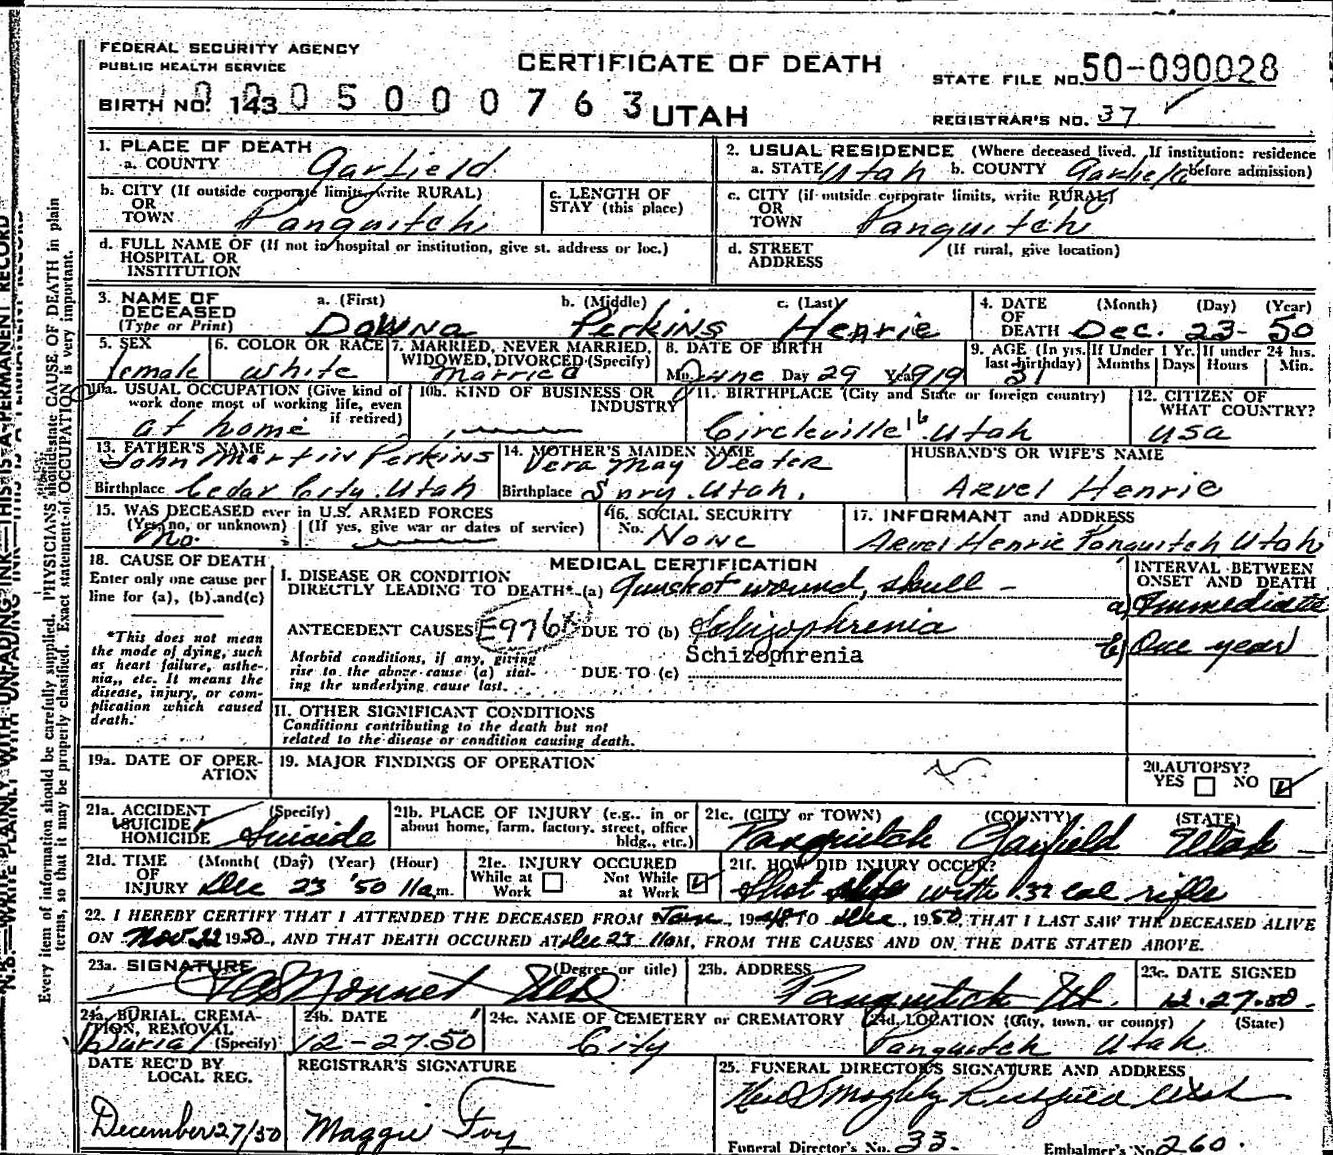 FEDERAL SECURITY AGENCY
PUBLIC HEALTH SERVICE
CERTIFICATE OF DEATH
STATE FILE NO. 50-090028
BIRTH NO. 143 0005000763 UTAH
REGISTRAR'S NO. 37
1. PLACE OF DEATH
a. COUNTY Garfield
2. USUAL RESIDENCE (Where deceased lived. If institution: residence before admission)
a. STATE Utah b. COUNTY Garfield
b. CITY (If outside corporate limits, write RURAL) OR TOWN Panguitch
c. LENGTH OF STAY (this place)
c. CITY (if outside corporate limits, write RURAL) OR TOWN Panguitch
d. FULL NAME OF (If not in hospital or institution, give st. address or loc.) HOSPITAL OR INSTITUTION
d. STREET ADDRESS (If rural, give location)
3. NAME OF DECEASED (Type or Print)
a. (First) b. (Middle) c. (Last)
Dawna Perkins Henrie
4. DATE OF DEATH (Month) (Day) (Year)
Dec. 23- 50
5. SEX female
6. COLOR OR RACE white
7. MARRIED, NEVER MARRIED, WIDOWED, DIVORCED (Specify) Married
8. DATE OF BIRTH
Mo June Day 29 Yr 1919
9. AGE (In yrs. last birthday) 31
If Under 1 Yr. Months Days
If under 24 hrs. Hours Min.
10a. USUAL OCCUPATION (Give kind of work done most of working life, even if retired)
at home
10b. KIND OF BUSINESS OR INDUSTRY
11. BIRTHPLACE (City and State or foreign country)
Circleville 16 Utah
12. CITIZEN OF WHAT COUNTRY?
USA
13. FATHER'S NAME
John Martin Perkins
Birthplace Cedar City. Utah
14. MOTHER'S MAIDEN NAME
Vera May Veater
Birthplace Snry. Utah.
HUSBAND'S OR WIFE'S NAME
Arvel Henrie
15. WAS DECEASED ever in U.S. ARMED FORCES
(Yes, no, or unknown) (If yes, give war or dates of service)
No.
16. SOCIAL SECURITY
No. None
17. INFORMANT and ADDRESS
Arvel Henrie Panguitch Utah
18. CAUSE OF DEATH
Enter only one cause per line for (a), (b), and (c)
*This does not mean the mode of dying, such as heart failure, asthenia, etc. It means the disease, injury, or complication which caused death.
MEDICAL CERTIFICATION
I. DISEASE OR CONDITION DIRECTLY LEADING TO DEATH* (a) Gunshot wound, skull -
ANTECEDENT CAUSES E976X DUE TO (b) Schizophrenia
Schizophrenia
Morbid conditions, if any, giving rise to the above cause (a) stating the underlying cause last.
DUE TO (c)
INTERVAL BETWEEN ONSET AND DEATH
a) Immediate
b) One year
II. OTHER SIGNIFICANT CONDITIONS
Conditions contributing to the death but not related to the disease or condition causing death.
19a. DATE OF OPERATION
19. MAJOR FINDINGS OF OPERATION
20. AUTOPSY?
YES NO
21a. ACCIDENT SUICIDE HOMICIDE (Specify)
Suicide
21b. PLACE OF INJURY (e.g.. in or about home, farm. factory. street, office bldg., etc.)
21c. (CITY or TOWN) (COUNTY) (STATE)
Panguitch Garfield Utah
21d. TIME OF INJURY (Month) (Day) (Year) (Hour)
Dec 23 '50 11a.m.
21e. INJURY OCCURED
While at Work Not While at Work
21f. HOW DID INJURY OCCUR?
Shot self with .32 cal rifle
22. I HEREBY CERTIFY THAT I ATTENDED THE DECEASED FROM Jan., 1948 TO Dec., 1950, THAT I LAST SAW THE DECEASED ALIVE
ON Nov 22 1950, AND THAT DEATH OCCURED AT Dec 23 11AM, FROM THE CAUSES AND ON THE DATE STATED ABOVE.
23a. SIGNATURE (Degree or title)
23b. ADDRESS
Panguitch Ut.
23c. DATE SIGNED
12.27.50
24a. BURIAL, CREMATION, REMOVAL (Specify)
Burial
24b. DATE
12-27.50
24c. NAME OF CEMETERY or CREMATORY
City
24d. LOCATION (City, town, or county) (State)
Panguitch Utah
DATE REC'D BY LOCAL REG.
December 27/50
REGISTRAR'S SIGNATURE
Maggie Foy
25. FUNERAL DIRECTOR'S SIGNATURE AND ADDRESS
Richfield Utah
Funeral Director's No. 33.
Embalmer's No. 260.
N.B.—WRITE PLAINLY WITH UNFADING INK—THIS IS A PERMANENT RECORD
Every item of information should be carefully supplied. PHYSICIANS should state CAUSE OF DEATH in plain
terms, so that it may be properly classified. Exact statement of OCCUPATION is very important.